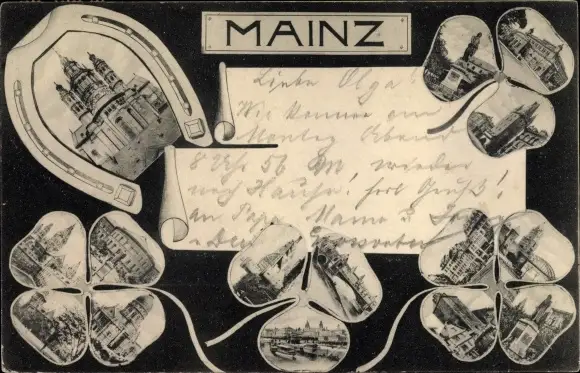 MAINZ
Liebe Olga!
Wir kommen am
Montag Abend
8 Uhr 56 M wieder
nach Hause! herl Gruß!
an Papa Mama &